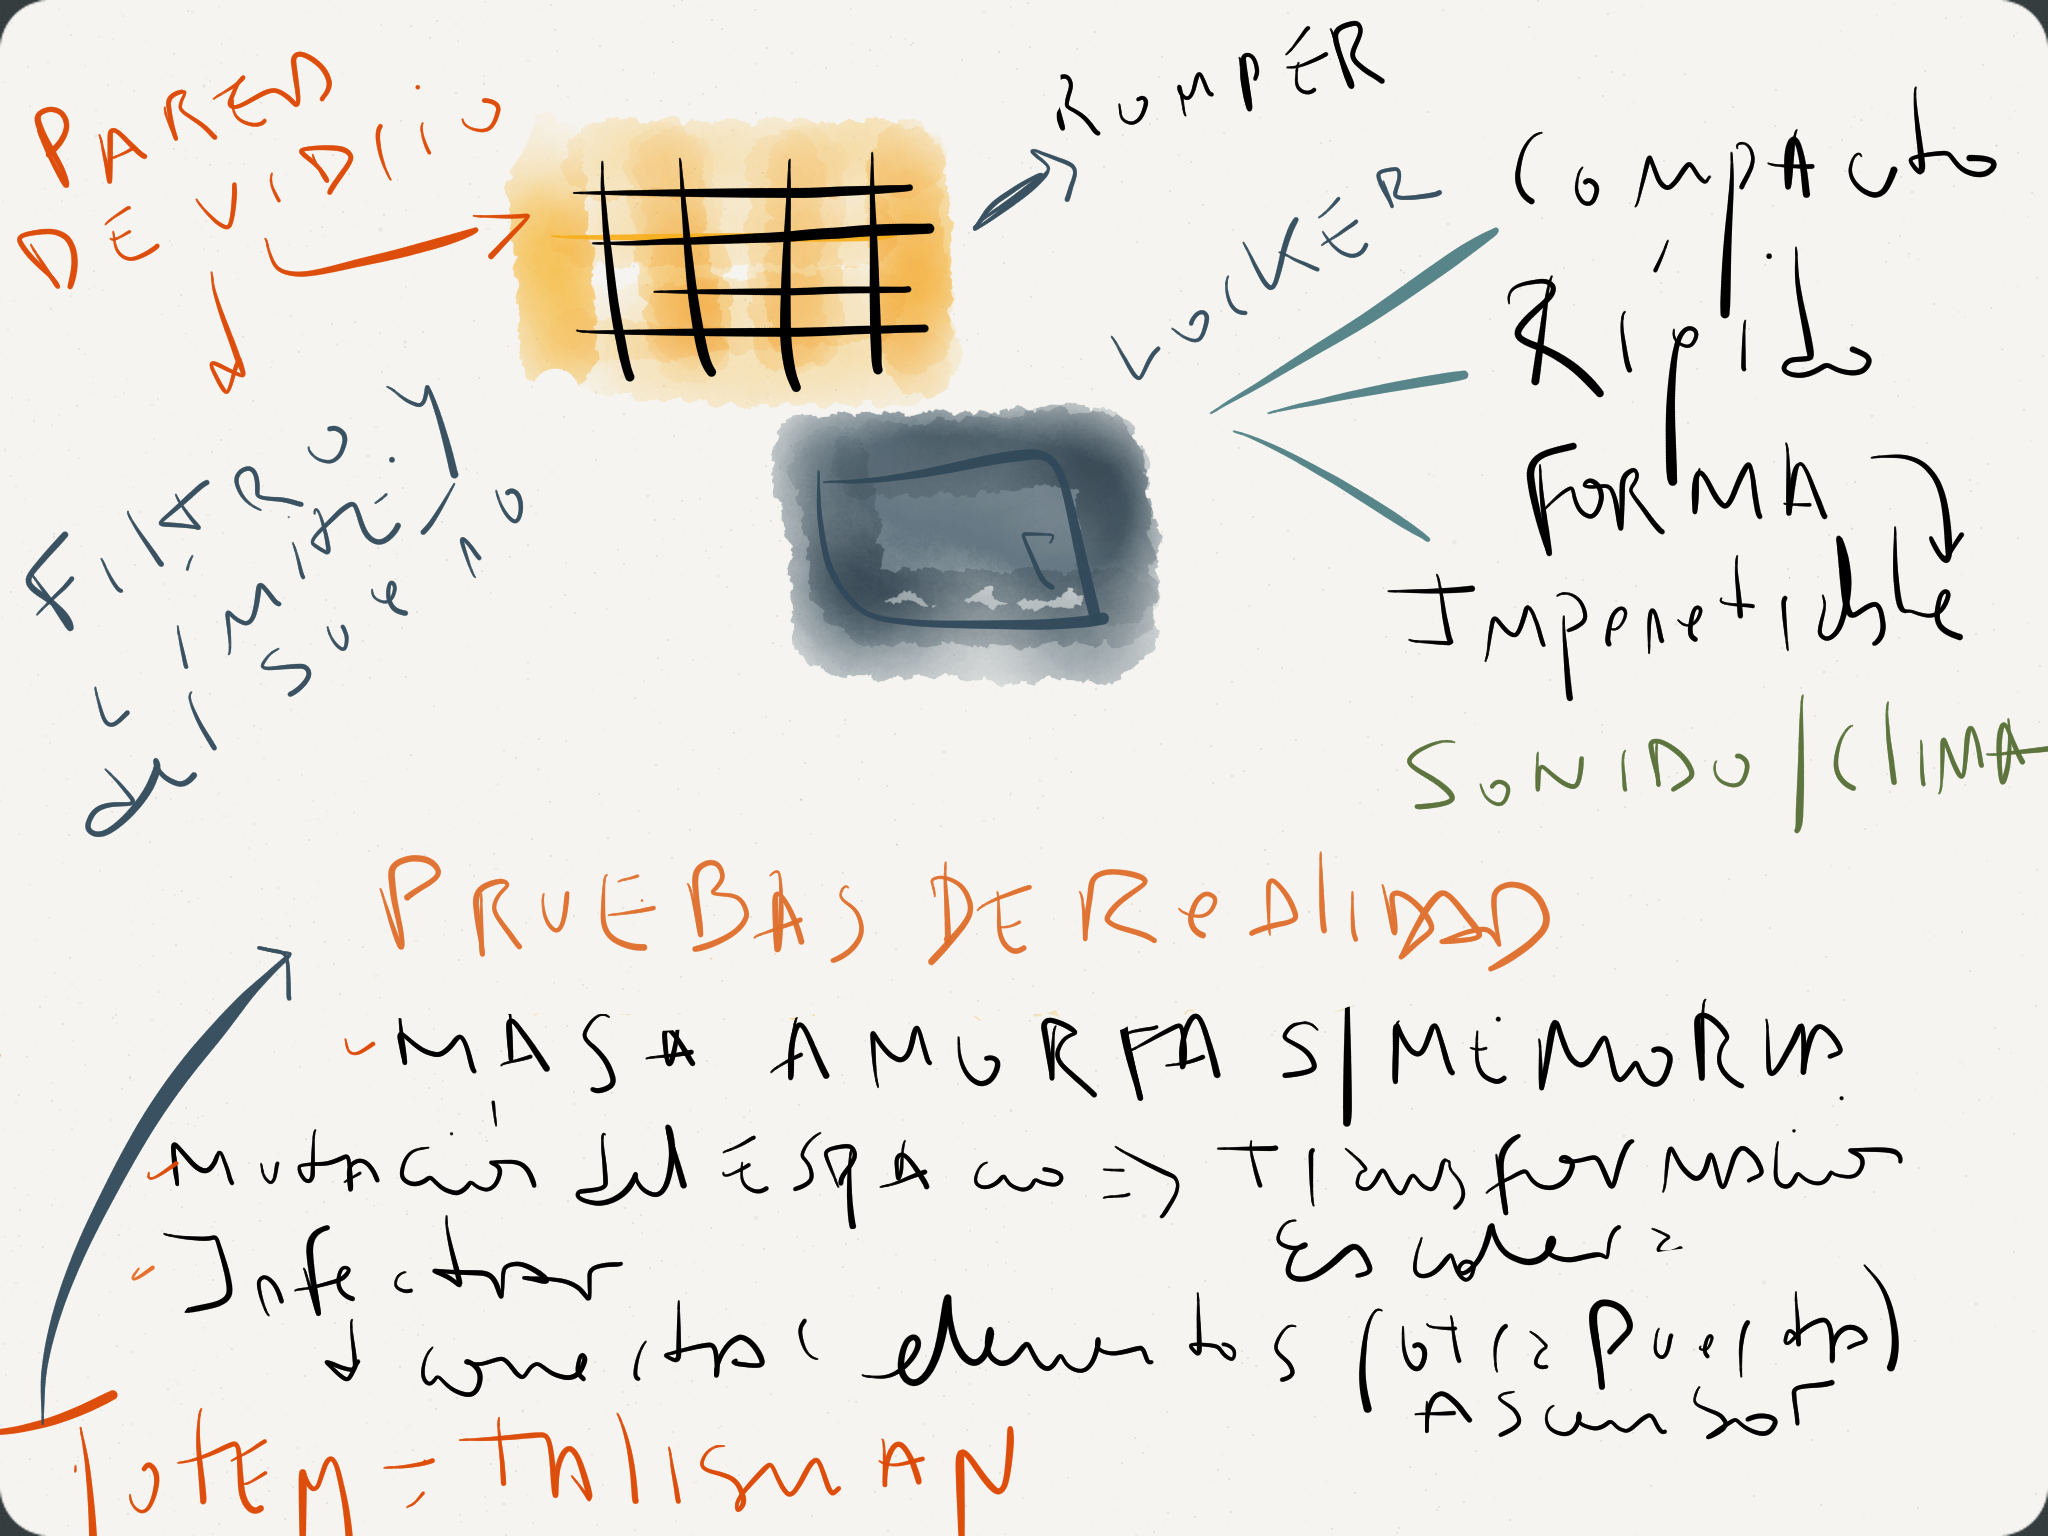 PARED
DE VIDRIO
ROMPER
LOCKER
COMPActo
Rígido
FORMA
Impenetrable
SONIDO/CLIMA
FILTRO Y
LIMITE
del sueño
PRUEBAS DE ReALIDAD
MASA AMORFA S/MEMORIA.
Mutación del ESPAcio => Transformación
Escalera
Infectar
conectar elementos (otra Puerta)
Ascensor
TOTEM = TALISMAN